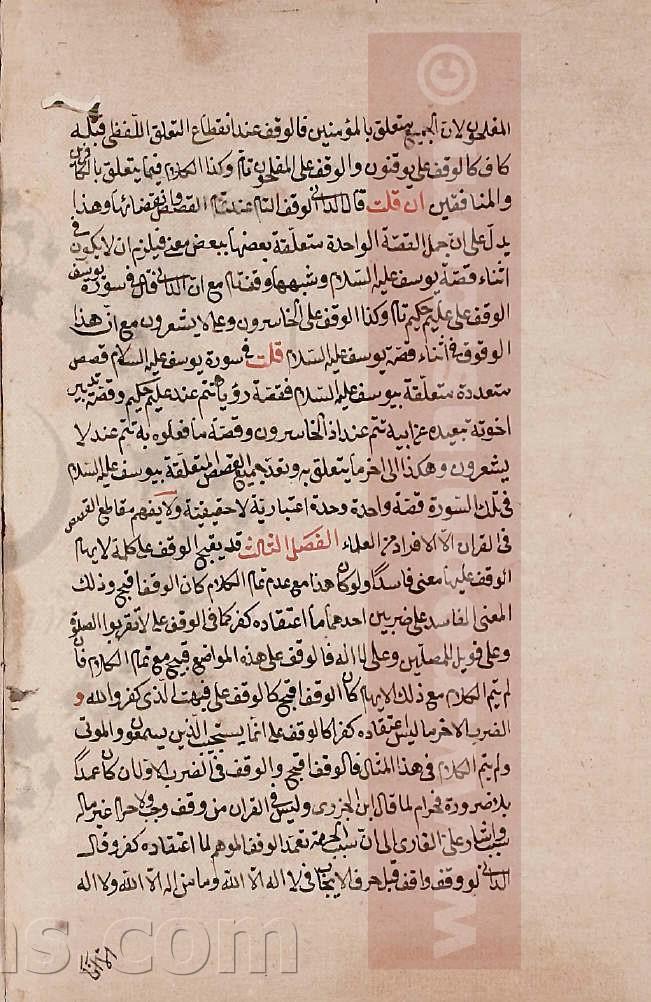 المفلحون لان الجميع متعلق بالمؤمنين فالوقف عند انقطاع التعلق اللفظى قبله
كاف كالوقف على يوقنون والوقف على المفلحون تام وكذا الكلام فيما يتعلق بالكافرين
والمنافقين ان قلت قال الدانى الوقف التام عند تمام القصص وانقضائها وهذا
يدل على ان جمل القصة الواحدة متعلقة بعضها ببعض معنى فيلزم ان لا يكون فى
اثناء قصة يوسف عليه السلام وشبهها وقف تام مع ان الدانى قال فى سورة يوسف
الوقف على عليم حكيم تام وكذا الوقف على لخاسرون وعلى لا يشعرون مع ان هذا
الوقوف فى اثناء قصة يوسف عليه السلام قلت فى سورة يوسف عليه السلام قصص
متعددة متعلقة بيوسف عليه السلام فقصة رؤياه تتم عند عليم حكيم وقصة تدبير
اخوته تبعيده عن ابيه تتم عند اذا لخاسرون وقصة ما فعلوه به تتم عند لا
يشعرون وهكذا الى اخر ما يتعلق به وتعد جميع القصص المتعلقة بيوسف عليه السلام
فى تلك السورة قصة واحدة وحدة اعتبارية لا حقيقية ولا يفهم مقاطع القصص
فى القران الا الافراد من العلماء الفصل الثالث قد يقبح الوقف على كلمة لايهام
الوقف عليها معنى فاسدا ولو كان هذا مع عدم تمام الكلام كان الوقف اقبح وذلك
المعنى الفاسد على ضربين احدهما ما اعتقاده كفر كما فى الوقف على لا تقربوا الصلوة
وعلى فويل للمصلين وعلى لا اله فالوقف على هذه المواضع قبيح مع تمام الكلام فان
لم يتم الكلام مع ذلك الايهام كان الوقف اقبح كالوقف على فبهت الذى كفر والله و
الضرب الاخر ما ليس اعتقاده كفرا كالوقف على انما يستجيب الذين يسمعون والموتى
ولم يتم الكلام فى هذا المثال فالوقف اقبح والوقف فى الضرب الاول ان كان عمدا
بلا ضرورة فحرام لما قال ابن الجزرى وليس فى القران من وقف وجب ولا حرام غير ما له
سبب واشار على القارى الى ان سبب الحرمة تعمد الوقف الموهم لما اعتقاده كفر وقال
الدانى لو وقف واقف قبل حرف الايجاب فى لا اله الا الله وما من اله الا الله ولا اله
الا انا